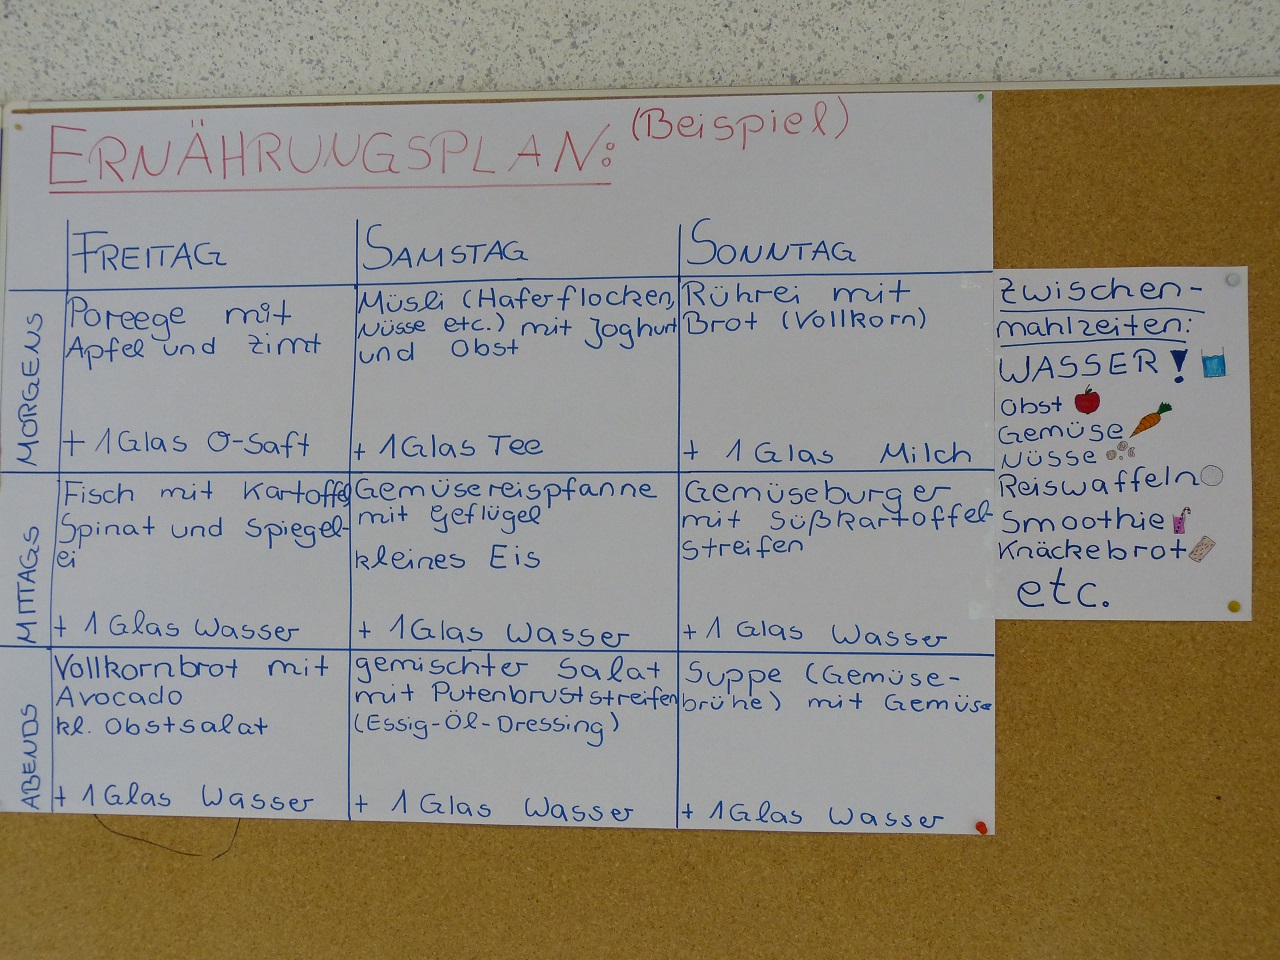 ERNÄHRUNGSPLAN: (Beispiel)
FREITAG
SAMSTAG
SONNTAG
MORGENS
Poreege mit
Apfel und Zimt
+ 1 Glas O-Saft
Müsli (Haferflocken,
Nüsse etc.) mit Joghurt
und Obst
+ 1 Glas Tee
Rührei mit
Brot (Vollkorn)
+ 1 Glas Milch
MITTAGS
Fisch mit Kartoffel
Spinat und Spiegel-
ei
+ 1 Glas Wasser
Gemüsereispfanne
mit Geflügel
kleines Eis
+ 1 Glas Wasser
Gemüseburger
mit Süßkartoffel-
streifen
+ 1 Glas Wasser
ABENDS
Vollkornbrot mit
Avocado
kl. Obstsalat
+ 1 Glas Wasser
gemischter Salat
mit Putenbruststreifen
(Essig-Öl-Dressing)
+ 1 Glas Wasser
Suppe (Gemüse-
brühe) mit Gemüse
+ 1 Glas Wasser
Zwischen-
mahlzeiten:
WASSER!
Obst
Gemüse
Nüsse
Reiswaffeln
Smoothie
Knäckebrot
etc.